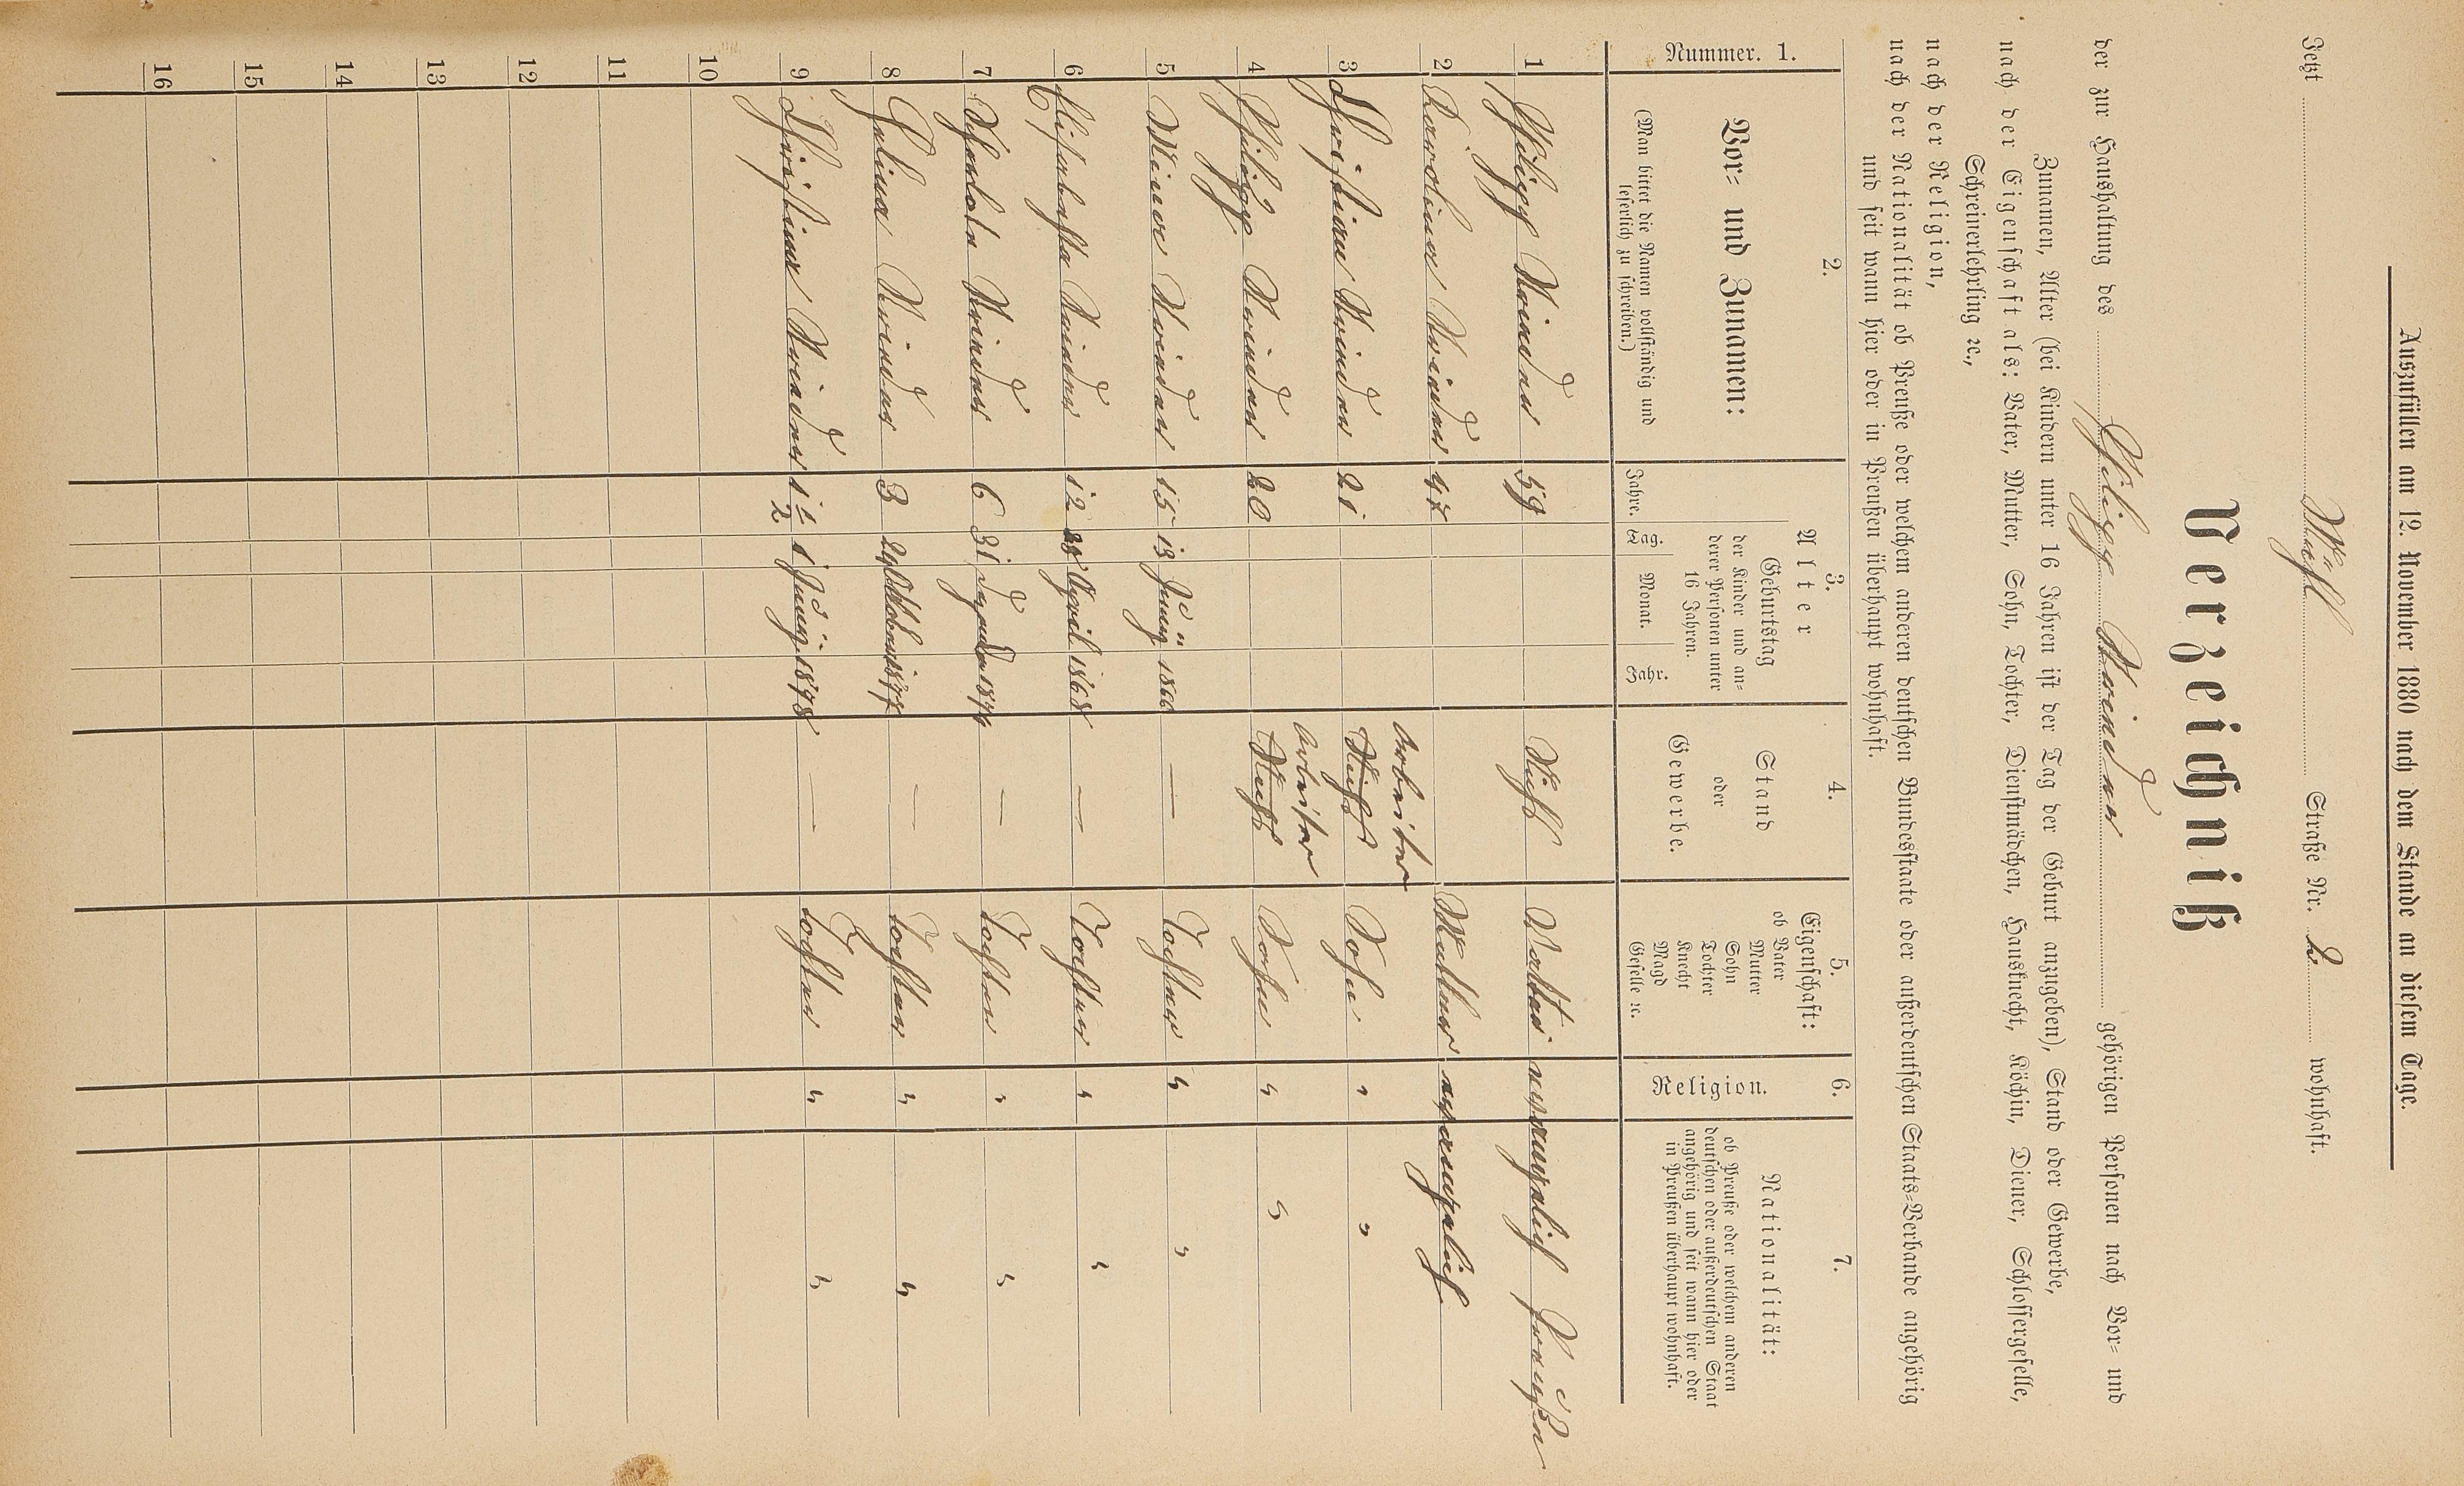 Auszufüllen am 12. November 1880 nach dem Stande an diesem Tage.
Jetzt Straße Nr. 2 wohnhaft.
Verzeichniß
der zur Haushaltung des Philipp gehörigen Personen nach Vor- und
Zunamen, Alter (bei Kindern unter 16 Jahren ist der Tag der Geburt anzugeben), Stand oder Gewerbe,
nach der Eigenschaft als: Vater, Mutter, Sohn, Tochter, Dienstmädchen, Hausknecht, Köchin, Diener, Schlossergeselle,
Schreinerlehrling ꝛc.,
nach der Religion,
nach der Nationalität ob Preuße oder welchem anderen deutschen Bundesstaate oder außerdeutschen Staats-Verbande angehörig
und seit wann hier oder in Preußen überhaupt wohnhaft.
Nummer. 1.
2.
Vor- und Zunamen:
(Man bittet die Namen vollständig und
leserlich zu schreiben.)
3.
Alter
Jahre.
Geburtstag
der Kinder und an-
derer Personen unter
16 Jahren.
Tag. Monat. Jahr.
4.
Stand
oder
Gewerbe.
5.
Eigenschaft:
ob Vater
Mutter
Sohn
Tochter
Knecht
Magd
Geselle ꝛc.
6.
Religion.
7.
Nationalität:
ob Preuße oder welchem anderen
deutschen oder außerdeutschen Staat
angehörig und seit wann hier oder
in Preußen überhaupt wohnhaft.
1 Philipp 59 Vater evangelisch Preußen
2 Karoline 47 Mutter evangelisch
arbeiter
3 Christian 21 Sohn " "
arbeiter
4 Philipp 20 Sohn " "
5 Mina 15 13 Juny 1866 — Tochter " "
6 Elisabetha 12 28 April 1868 — Tochter " "
7 6 31 1874 — Tochter " "
8 3 24 Oktober 1877 — Tochter " "
9 Christiana 1 1/2 1 Juny 1878 — Tochter " "
10
11
12
13
14
15
16